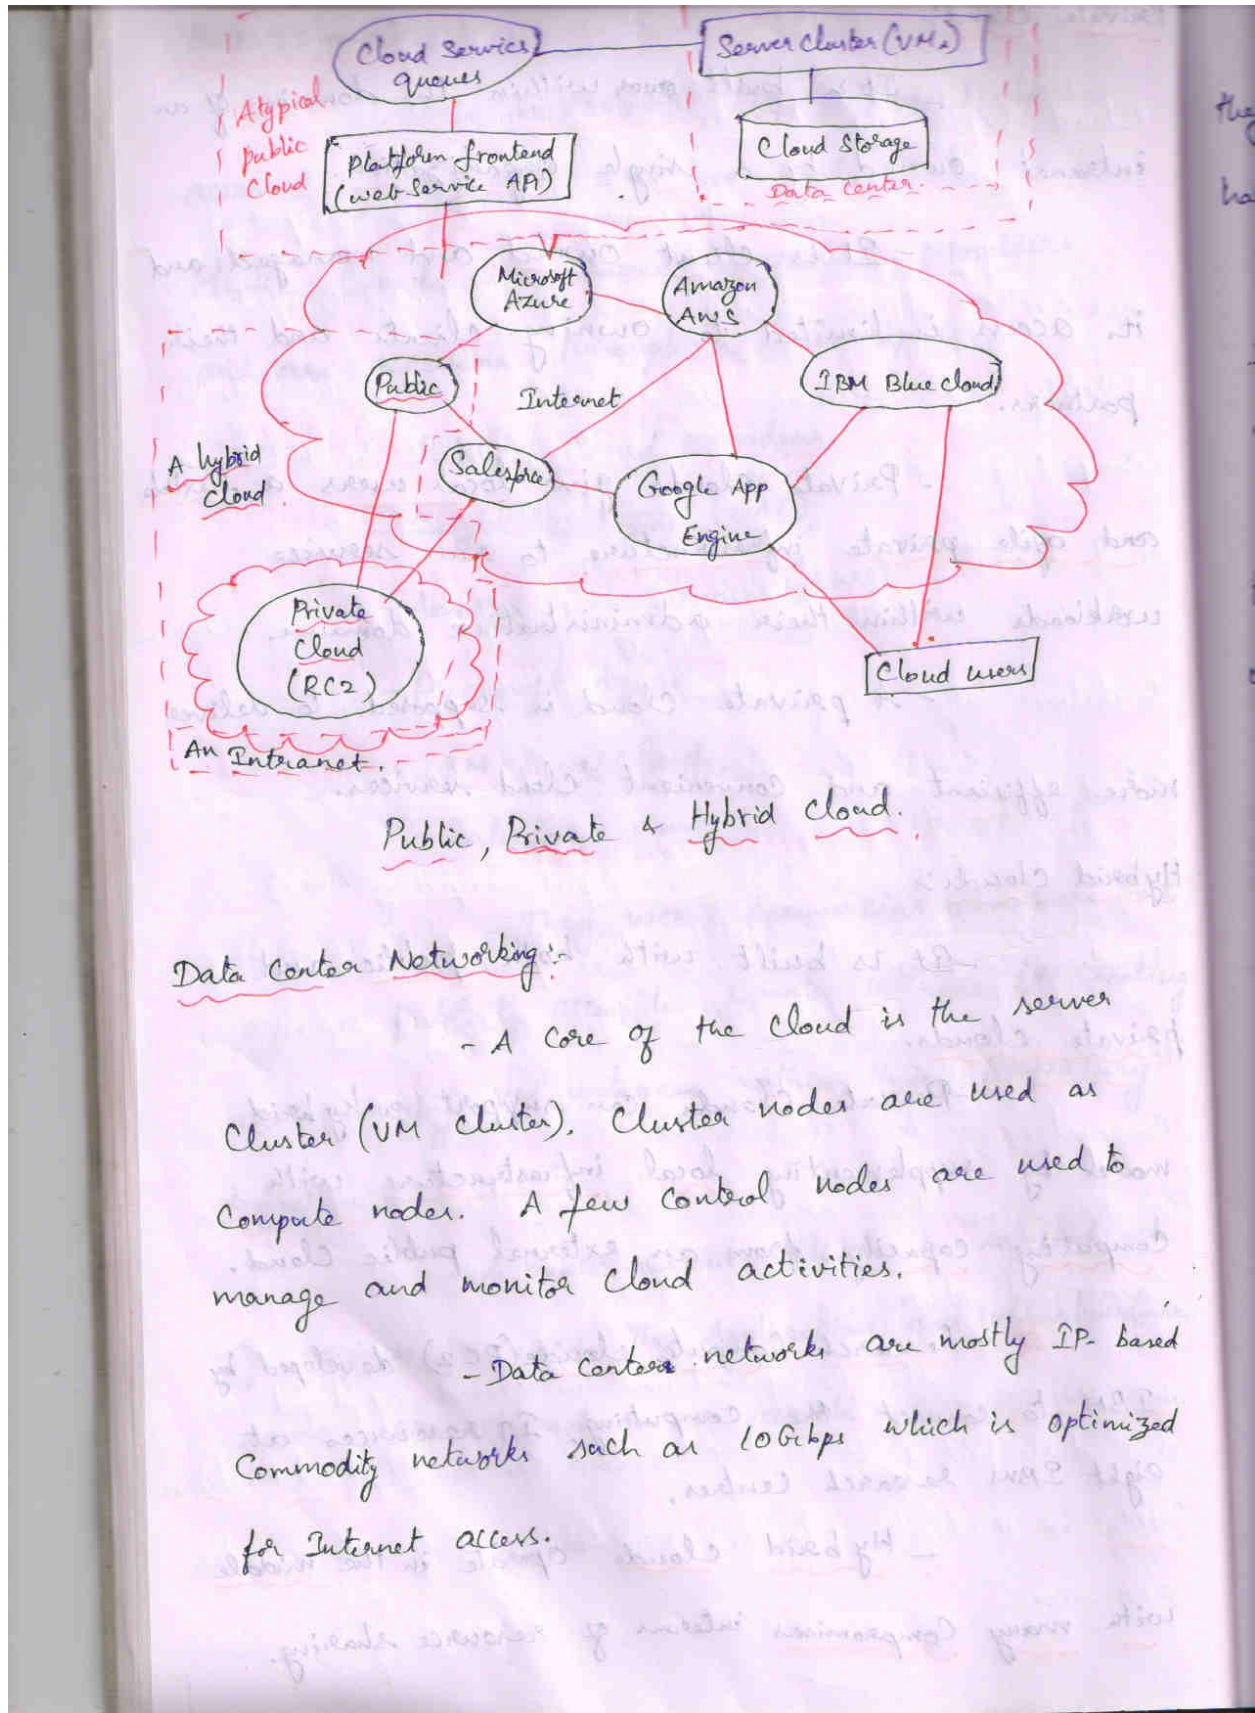 Cloud Service
queues
Server Cluster (VMs)
A typical
public
Cloud
Platform frontend
(web service API)
Cloud Storage
Data Center.
Microsoft
Azure
Amazon
AWS
Public
Internet
IBM Blue cloud
A hybrid
cloud.
Salesforce
Google App
Engine
Private
Cloud
(RC2)
Cloud users
An Intranet.
Public, Private & Hybrid Cloud.
Data Center Networking:-
- A core of the cloud is the server
Cluster (VM cluster). Cluster nodes are used as
Compute nodes. A few control nodes are used to
manage and monitor cloud activities.
- Data Center networks are mostly IP- based
Commodity networks such as 10Gbps which is optimized
for Internet access.
the
ha